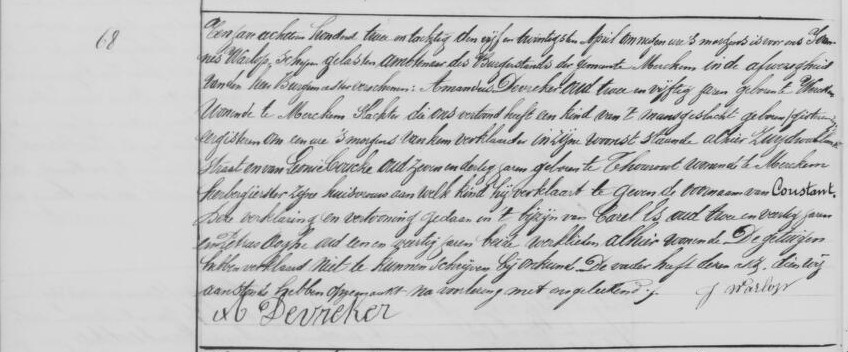 68
Een jaar achttien honderd twee en tachtig den vijf en twintigsten April om negen ure 's morgens is voor ons Joan-
nis Warlop, Schepen gelasten ambtenaer des Burgerstands der gemeente Merckem in de afwezigheid
van den heer Burgemeester verschenen: Amandus Devreker oud twee en vijftig jaren geboren te Wercken
Wonende te Merckem Slachter die ons vertoond heeft een kind van 't mansgeslacht geboren
eergisteren om een ure 's morgens van hem verklaarder in zijne woonst staande alhier
straat en van Leonie Couche oud zeven en dertig jaren geboren te Thourout wonende te Merckem
herbergierster zijne huisvrouw aan welk kind hij verklaart te geven de voornaam van Constant.
Deze verklaring en vertooning gedaan in 't bijzijn van Carel Es oud twee en veertig jaren
en Petrus oud een en veertig jaren beide werklieden alhier wonende De getuigen
hebben verklaard niet te kunnen schrijven bij oirkonde De vader heeft deze akt, dien wij
aanstonds hebben opgemaakt na voorlezing met ons geteekend ./.
J Warlop
A Devreker